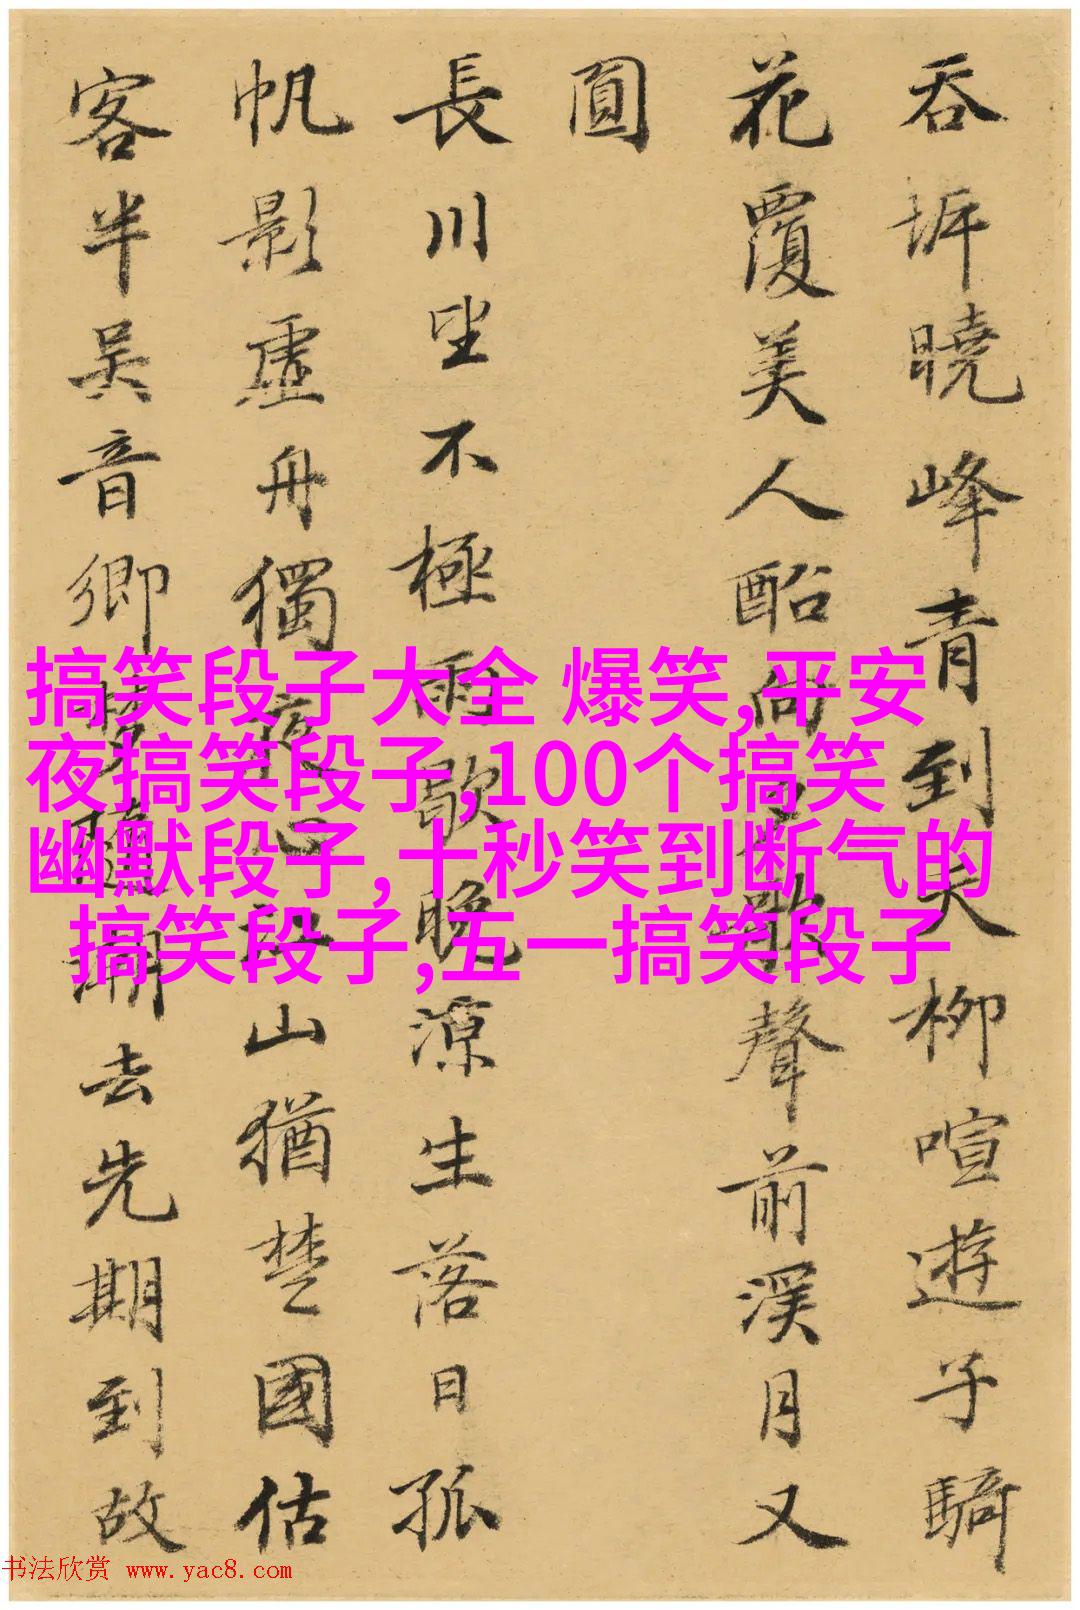 吞坼曉峰青到天柳喧遊子騎
花覆美人船向夕歌聲前溪月又
圓
長川坐不極雨歇晚涼生落日孤
帆影虛舟獨夜心江山猶楚國估
客半吳音鄉夢隨潮去先期到故
搞笑段子大全 爆笑,平安
夜搞笑段子,100个搞笑
幽默段子,十秒笑到断气的
搞笑段子,五一搞笑段子
书法欣赏 www.yac8.com